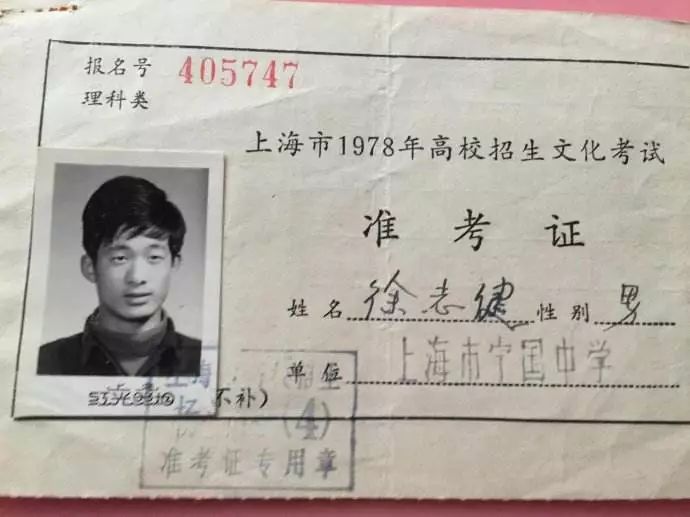 报名号 405747
理科类
上海市1978年高校招生文化考试
准考证
姓名 徐志健 性别 男
单位 上海市宁国中学
不补)
(4)
准考证专用章